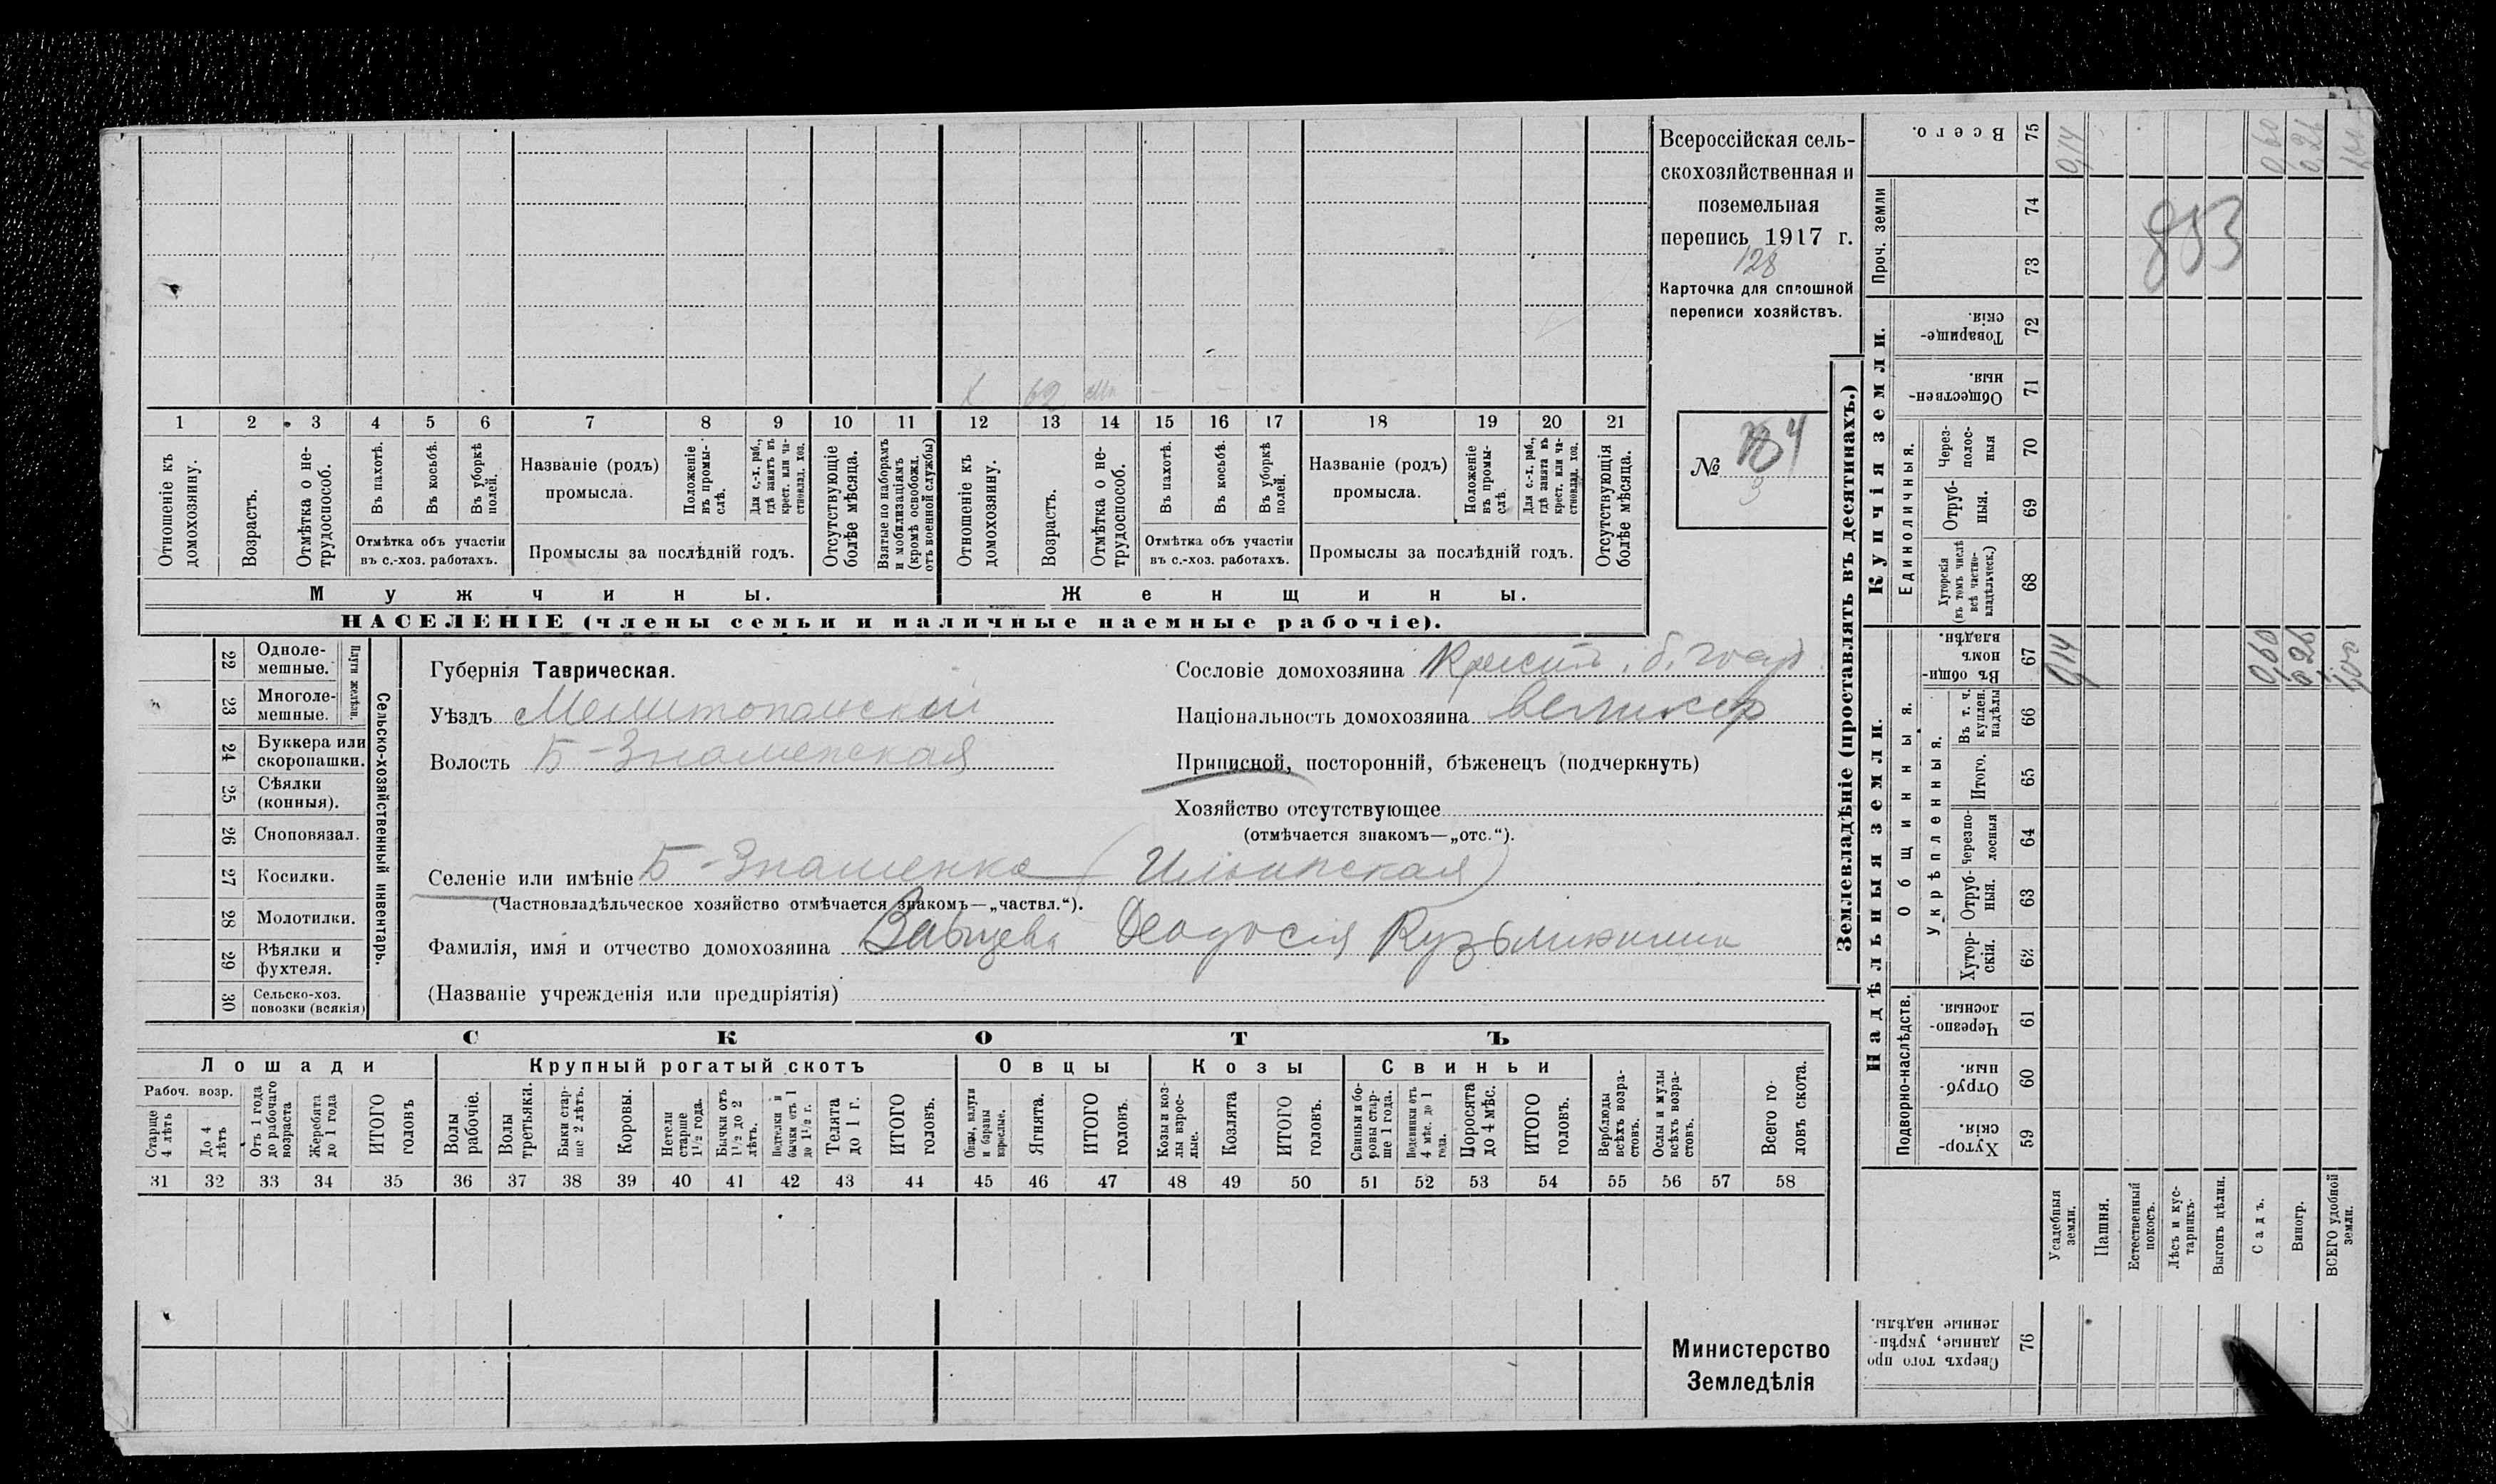 Всероссійская сель-
скохозяйственная и
поземельная
перепись 1917 г.
128
Карточка для сплошной
переписи хозяйствъ.
№
853
62
1 2 3 4 5 6 7 8 9 10 11 12 13 14 15 16 17 18 19 20 21
Отношеніе къ домохозяину.
Возрастъ.
Отмѣтка о не-трудоспособ.
Въ пахотѣ.
Въ косьбѣ.
Въ уборкѣ полей.
Отмѣтка объ участіи
въ с.-хоз. работахъ.
Названіе (родъ)
промысла.
Положеніе въ промы-слѣ.
Для с.-х. раб., гдѣ занятъ въ крест. или ча-стновлад. хоз.
Промыслы за послѣдній годъ.
Отсутствующіе болѣе мѣсяца.
Взятые по наборамъ и мобилизаціямъ (кромѣ освобожд. отъ военной службы)
Отношеніе къ домохозяину.
Возрастъ.
Отмѣтка о не-трудоспособ.
Въ пахотѣ.
Въ косьбѣ.
Въ уборкѣ полей.
Отмѣтка объ участіи
въ с.-хоз. работахъ.
Названіе (родъ)
промысла.
Положеніе въ промы-слѣ.
Для с.-х. раб., гдѣ занята въ крест. или ча-стновлад. хоз.
Промыслы за послѣдній годъ.
Отсутствующія болѣе мѣсяца.
Мужчины.
Женщины.
НАСЕЛЕНІЕ (члены семьи и наличные наемные рабочіе).
22 Одноле-мешные.
23 Многоле-мешные.
Плуги желѣзн.
24 Буккера или скоропашки.
25 Сѣялки (конныя).
26 Сноповязал.
27 Косилки.
28 Молотилки.
29 Вѣялки и фухтеля.
30 Сельско-хоз. повозки (всякія)
Сельско-хозяйственный инвентарь.
Губернія Таврическая.
Уѣздъ Мелитопольскій
Волость Б-Знаменская
Сословіе домохозяина Крестьян. б. госуд
Національность домохозяина великор
Приписной, посторонній, бѣженецъ (подчеркнуть)
Хозяйство отсутствующее
(отмѣчается знакомъ—„отс.“).
Селеніе или имѣніе Б-Знаменка (Ильинская)
(Частновладѣльческое хозяйство отмѣчается знакомъ—„частвл.“).
Фамилія, имя и отчество домохозяина Феодосія Кузьминична
(Названіе учрежденія или предпріятія)
СКОТЪ
Лошади
Крупный рогатый скотъ
Овцы
Козы
Свиньи
Рабоч. возр.
Старше 4 лѣтъ
До 4 лѣтъ
Отъ 1 года до рабочаго возраста
Жеребята до 1 года
ИТОГО головъ
Волы рабочіе.
Волы третьяки.
Быки стар-ше 2 лѣтъ.
Коровы.
Нетели старше 1½ года.
Бычки отъ 1½ до 2 лѣтъ.
Подтелки и бычки отъ 1 до 1½ г.
Телята до 1 г.
ИТОГО головъ.
Овцы, валухи и бараны взрослые.
Ягнята.
ИТОГО головъ.
Козы и коз-лы взрос-лые.
Козлята
ИТОГО головъ.
Свиньи и бо-ровы стар-ше 1 года.
Подсвинки отъ 4 мѣс. до 1 года.
Поросята до 4 мѣс.
ИТОГО головъ.
Верблюды всѣхъ возра-стовъ.
Ослы и мулы всѣхъ возра-стовъ.
Всего го-ловъ скота.
31 32 33 34 35 36 37 38 39 40 41 42 43 44 45 46 47 48 49 50 51 52 53 54 55 56 57 58
Министерство
Земледѣлія
Землевладѣніе (проставлять въ десятинахъ.)
Купчія земли.
Надѣльныя земли.
Всего. 75
Проч. земли 74 73
Товарище-скія. 72
Обществен-ныя. 71
Единоличныя.
Через-полос-ныя 70
Отруб-ныя. 69
Хуторскія (въ томъ числѣ всѣ частно-владѣльческ.) 68
Общинныя.
Въ общин-номъ владѣн. 67
Укрѣпленныя.
Въ т. ч. куплен. надѣлы 66
Итого. 65
Черезпо-лосныя 64
Отруб-ныя. 63
Хутор-скія. 62
Подворно-наслѣдств.
Черезпо-лосныя. 61
Отруб-ныя. 60
Хутор-скія. 59
Усадебныя земли.
Пашня.
Естественный покосъ.
Лѣсъ и кус-тарникъ.
Выгонъ цѣлин.
Садъ.
Виногр.
ВСЕГО удобной земли.
0,14 0,60 0,26 1,00
0,14 0,60 0,26 1,00
Сверхъ того про-данные, укрѣп-ленные надѣлы. 76